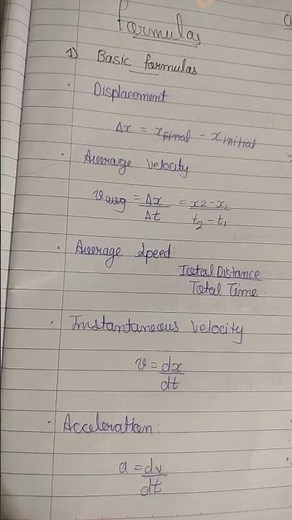 Formulas
1) Basic formulas
· Displacement
Δx = xfinal - xinitial
· Average velocity
vavg = Δx/Δt = x2-x1/t2-t1
· Average speed
Total Distance/Total Time
· Instantaneous velocity
v = dx/dt
· Acceleration
a = dv/dt